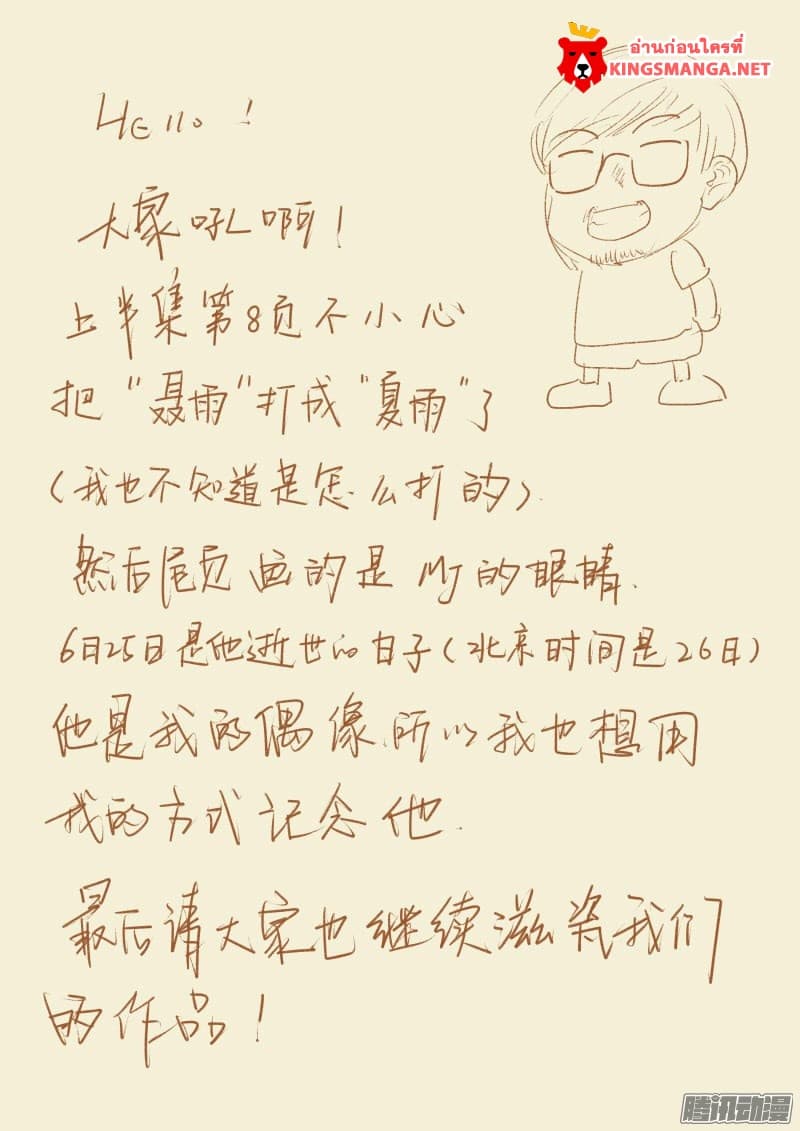 อ่านก่อนใครที่
KINGSMANGA.NET
HEllo!
大家吼啊!
上半集第8页不小心
把“聂雨”打成“夏雨”了
(我也不知道是怎么打的).
然后尾页画的是MJ的眼睛.
6日25日是他逝世的日子(北京时间是26日)
他是我的偶像,所以我也想用
我的方式记念他.
最后请大家也继续滋瓷我们
的作品!
腾讯动漫